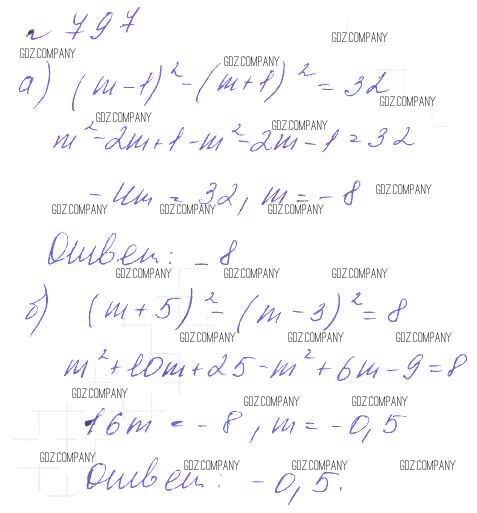 № 797
GDZ.COMPANY
GDZ.COMPANY
а) (m-1)² - (m+1)² = 32
GDZ.COMPANY
GDZ.COMPANY
GDZ.COMPANY
GDZ.COMPANY
m² - 2m + 1 - m² - 2m - 1 = 32
- 4m = 32, m = - 8
GDZ.COMPANY
GDZ.COMPANY GDZ.COMPANY GDZ.COMPANY
Ответ: - 8
GDZ.COMPANY GDZ.COMPANY GDZ.COMPANY
б) (m + 5)² - (m - 3)² = 8
GDZ.COMPANY GDZ.COMPANY GDZ.COMPANY
m² + 10m + 25 - m² + 6m - 9 = 8
GDZ.COMPANY GDZ.COMPANY GDZ.COMPANY
16m = - 8, m = - 0,5
GDZ.COMPANY GDZ.COMPANY GDZ.COMPANY GDZ.COMPANY
Ответ: - 0,5.